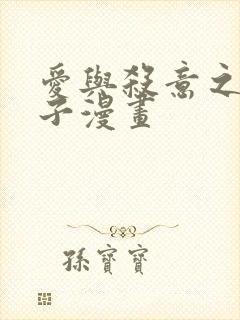 愛與殺意之
子漫畫
孫寶寶